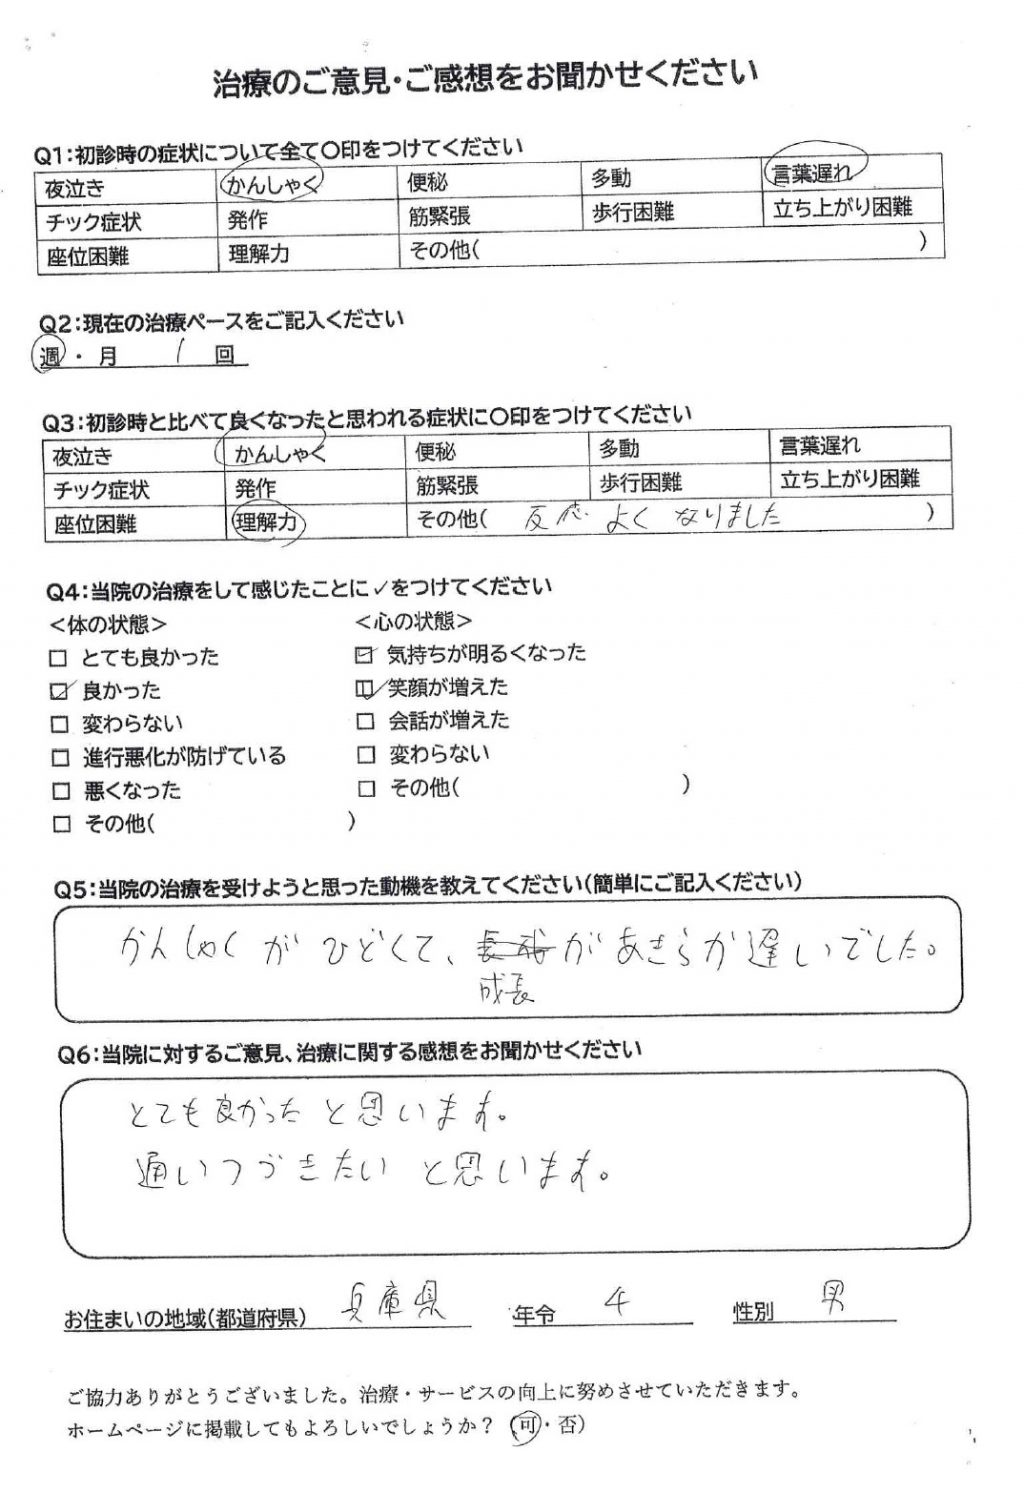 治療のご意見・ご感想をお聞かせください
Q1:初診時の症状について全て〇印をつけてください
夜泣き かんしゃく 便秘 多動 言葉遅れ
チック症状 発作 筋緊張 歩行困難 立ち上がり困難
座位困難 理解力 その他( )
Q2:現在の治療ペースをご記入ください
週・月 1 回
Q3:初診時と比べて良くなったと思われる症状に〇印をつけてください
夜泣き かんしゃく 便秘 多動 言葉遅れ
チック症状 発作 筋緊張 歩行困難 立ち上がり困難
座位困難 理解力 その他( 反応よくなりました )
Q4:当院の治療をして感じたことに✓をつけてください
<体の状態> <心の状態>
□ とても良かった ☑ 気持ちが明るくなった
☑ 良かった ☑ 笑顔が増えた
□ 変わらない □ 会話が増えた
□ 進行悪化が防げている □ 変わらない
□ 悪くなった □ その他( )
□ その他( )
Q5:当院の治療を受けようと思った動機を教えてください(簡単にご記入ください)
かんしゃくがひどくて、成長があきらか遅いでした。
Q6:当院に対するご意見、治療に関する感想をお聞かせください
とても良かったと思います。
通いつづきたいと思います。
お住まいの地域(都道府県) 兵庫県 年令 4 性別 男
ご協力ありがとうございました。治療・サービスの向上に努めさせていただきます。
ホームページに掲載してもよろしいでしょうか？ (可・否)